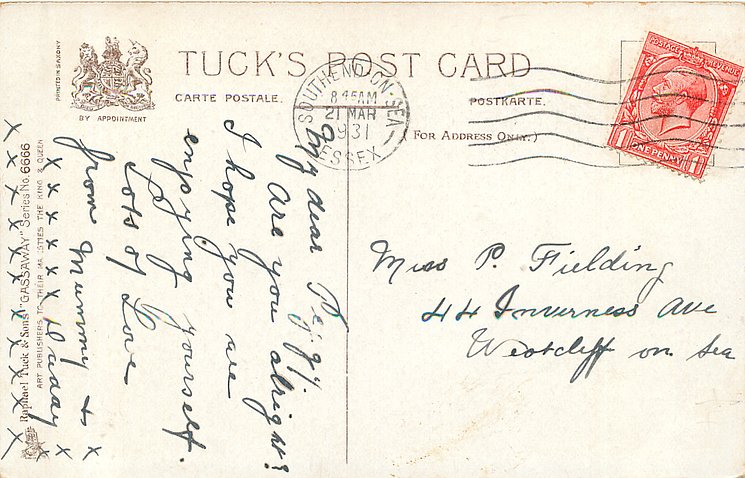 TUCK'S POST CARD
CARTE POSTALE.
POSTKARTE.
(FOR ADDRESS ONLY.)
BY APPOINTMENT
PRINTED IN SAXONY
Raphael Tuck & Sons' "GASSAWAY" Series No. 6666
ART PUBLISHERS TO THEIR MAJESTIES THE KING & QUEEN
SOUTHEND-ON-SEA
8 15 AM
21 MAR
1931
ESSEX
POSTAGE REVENUE
1 ONE PENNY 1
My dear Peggy.
Are you alright?
I hope you are
enjoying yourself.
Lots of Love
from Mummy &
Daddy
x x x x x x x x x
x x x x x x x x x x x
Miss P. Fielding
44 Inverness Ave
Westcliff on Sea